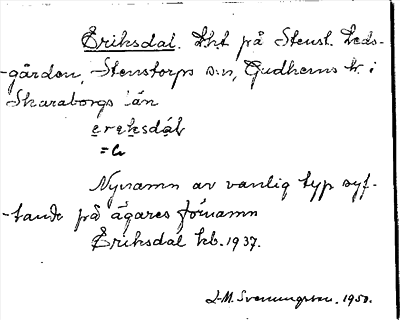 Eriksdal. Lht på Stenst. Leds-
-gården, Stenstorps s:n, Gudhems h. i
Skaraborgs län
ereksdal
= G
Nynamn av vanlig typ syf-
-tande på ägares förnamn
Eriksdal kb. 1937.
J-M. Svenungsson. 1950.